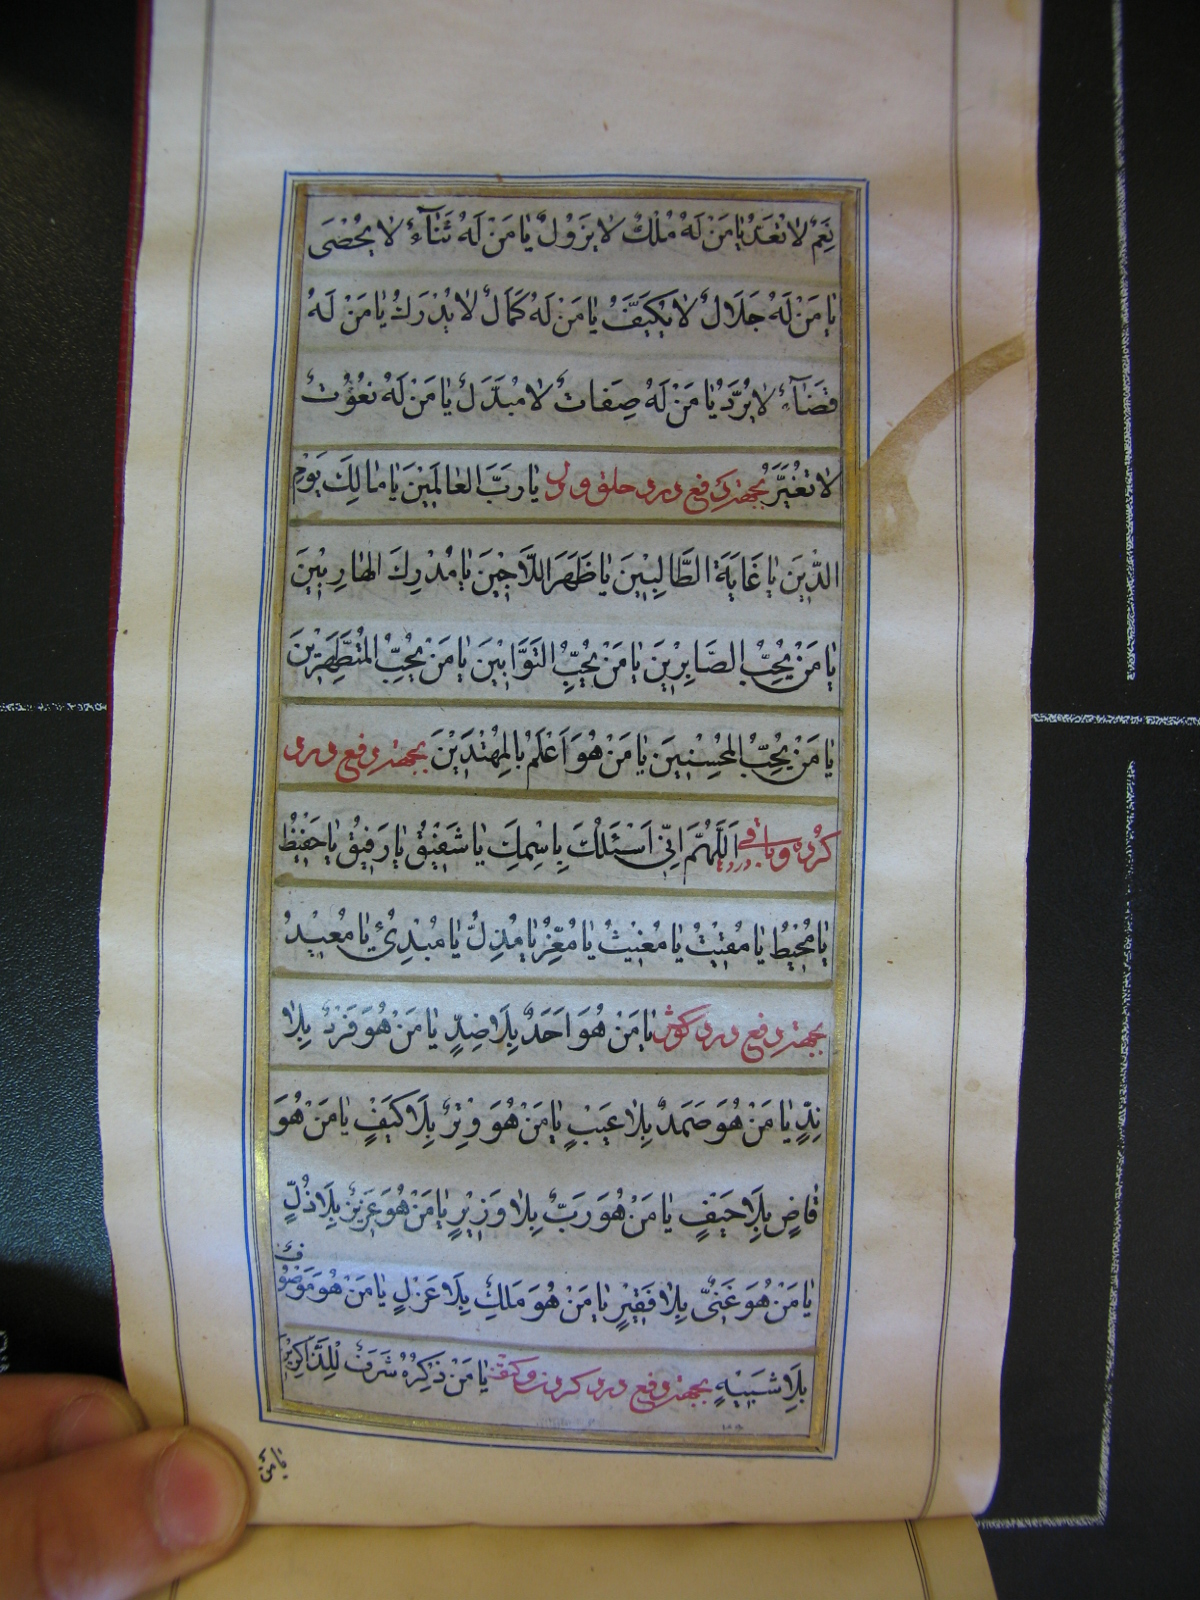 نِعَمٌ لاٰ تُعَدُّ یٰا مَنْ لَهُ مُلْكٌ لاٰ یَزُوْلُ یٰا مَنْ لَهُ ثَنٰآءٌ لاٰ یُحْصٰی
یٰا مَنْ لَهُ جَلَالٌ لاٰ یُكَیَّفُ یٰا مَنْ لَهُ كَمَالٌ لاٰ یُدْرَكُ یٰا مَنْ لَهُ
قَضٰآءٌ لاٰ یُرَدُّ یٰا مَنْ لَهُ صِفٰاتٌ لاٰ مُبَدَّلُ یٰا مَنْ لَهُ نُعُوْتٌ
لاٰ تُغَیَّرُ بجهتِ دفع درد حلق و یٰا رَبَّ العٰالَمِیْنَ یٰا مٰالِكَ یَوْمِ
الدِّیْنِ یٰا غَایَةَ الطَّالِبِیْنَ یٰا ظَهَرَ اللَّاجِیْنَ یٰا مُدْرِكَ الهٰارِبِیْنَ
یٰا مَنْ یُحِبُّ الصَّابِرِیْنَ یٰا مَنْ یُحِبُّ التَوَّابِیْنَ یٰا مَنْ یُحِبُّ المُتَطَهِّرِیْنَ
یٰا مَنْ یُحِبُّ المُحْسِنِیْنَ یٰا مَنْ هُوَ اَعْلَمُ بِالمُهْتَدِیْنَ بجهتِ دفع درد
كُرده و اَللّٰهُمَّ اِنّی اَسْئَلُكَ بِاِسْمِكَ یٰا شَفِیْقُ یٰا رَفِیْقُ یٰا حَفِیْظُ
یٰا مُحِیْطُ یٰا مُقِیْتُ یٰا مُغِیْثُ یٰا مُعِزُّ یٰا مُذِلُّ یٰا مُبْدِئُ یٰا مُعِیْدُ
بجهتِ دفع درد گوش یٰا مَنْ هُوَ اَحَدٌ بِلَا ضِدٍّ یٰا مَنْ هُوَ فَرْدٌ بِلاٰ
نِدٍّ یٰا مَنْ هُوَ صَمَدٌ بِلاٰ عَیْبٍ یٰا مَنْ هُوَ وِتْرٌ بِلَا كَیْفٍ یٰا مَنْ هُوَ
قٰاضٍ بِلَا حَیْفٍ یٰا مَنْ هُوَ رَبٌّ بِلاٰ وَزِیْرٍ یٰا مَنْ هُوَ عَزِیْزٌ بِلَا ذُلٍّ
یٰا مَنْ هُوَ غَنِیٌّ بِلاٰ فَقِیْرٍ یٰا مَنْ هُوَ مَلِكٌ بِلَا عَزْلٍ یٰا مَنْ هُوَ مَوْصُوْفٌ
بِلَا شَبِیْهٍ بجهتِ دفع درد كردن و كتف یٰا مَنْ ذِكْرُهُ شَرَفٌ لِلذَّاكِرِیْنَ
یٰا مَنْ